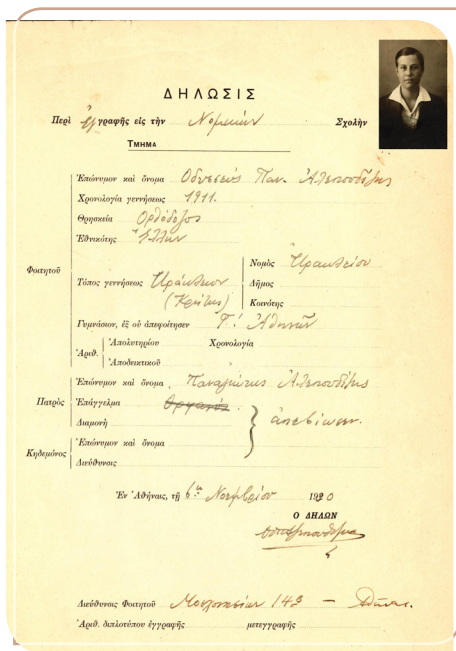 ΔΗΛΩΣΙΣ
Περὶ ἐγγραφῆς εἰς τὴν Νομικὴν Σχολὴν
ΤΜΗΜΑ
Φοιτητοῦ
Ἐπώνυμον καὶ ὄνομα Οδυσσεὺς Παν. Ἀλεπουδέλης
Χρονολογία γεννήσεως 1911.
Θρησκεία Ορθόδοξος
Ἐθνικότης Ἕλλην
Τόπος γεννήσεως Ἡράκλειον (Κρήτης)
Νομὸς Ἡρακλείου
Δῆμος
Κοινότης
Γυμνάσιον, ἐξ οὗ ἀπεφοίτησεν Γ! Ἀθηνῶν
Ἀριθ. Ἀπολυτηρίου Χρονολογία
Ἀποδεικτικοῦ
Πατρὸς
Ἐπώνυμον καὶ ὄνομα Παναγιώτης Ἀλεπουδέλης
Ἐπάγγελμα
Διαμονὴ ἀπεβίωσεν.
Κηδεμόνος
Ἐπώνυμον καὶ ὄνομα
Διεύθυνσις
Ἐν Ἀθήναις, τῇ 6ῃ Νοεμβρίου 1930
Ο ΔΗΛΩΝ
Διεύθυνσις Φοιτητοῦ Μοσχονησίων 148 — Ἀθήνας.
Ἀριθ. διπλοτύπου ἐγγραφῆς μετεγγραφῆς